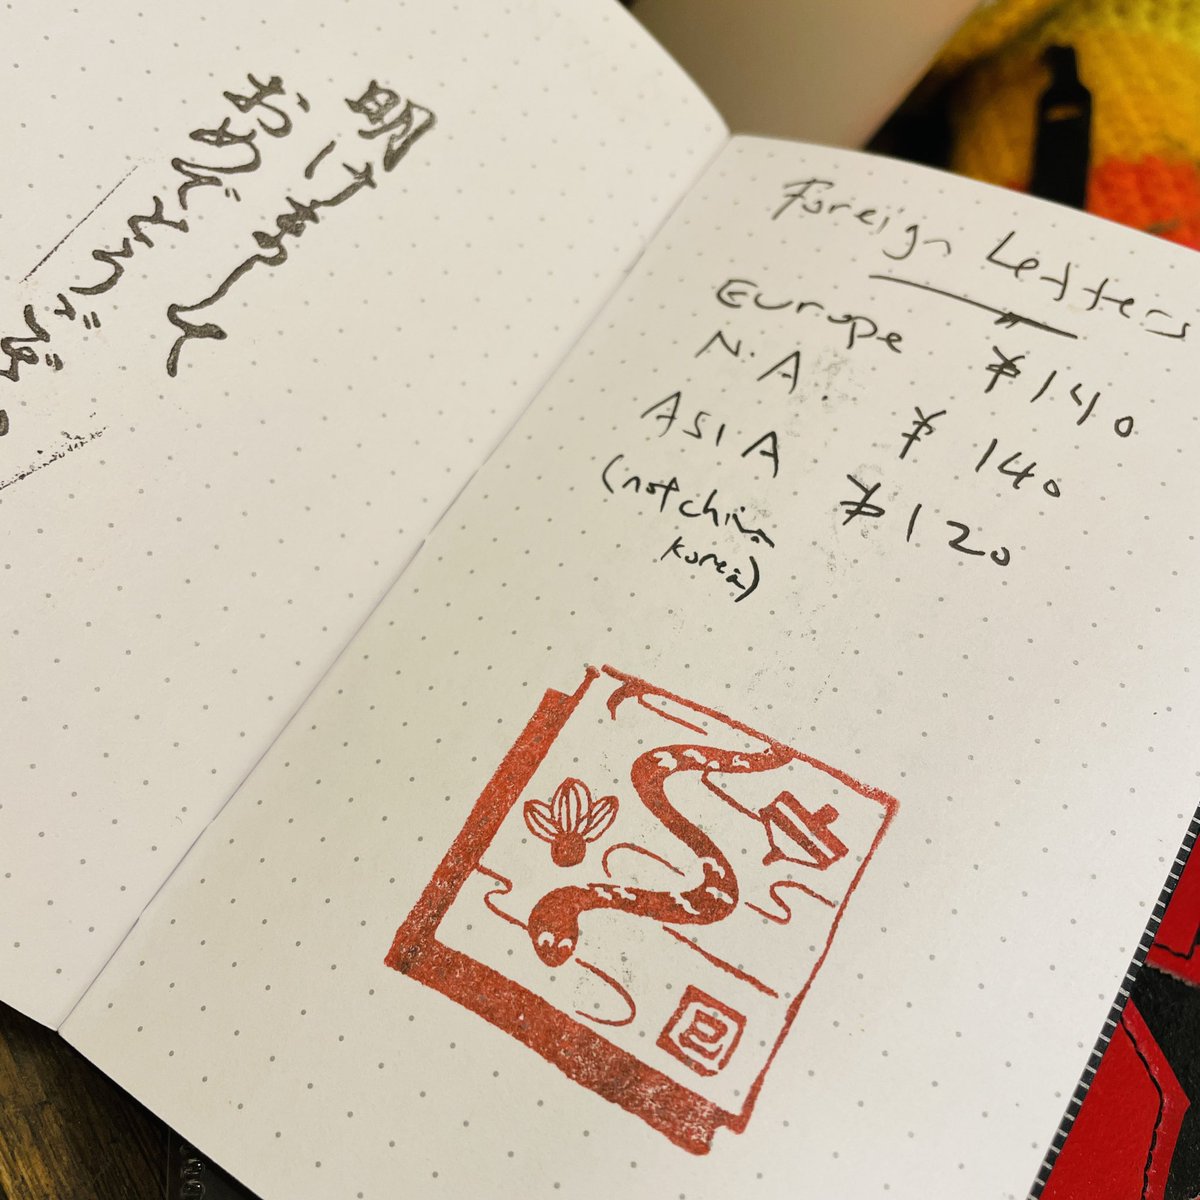 明けまして
おめでとうござ
Foreign Letters
Europe ¥140
N.A. ¥140
ASIA ¥120
(not china
korea)
巳